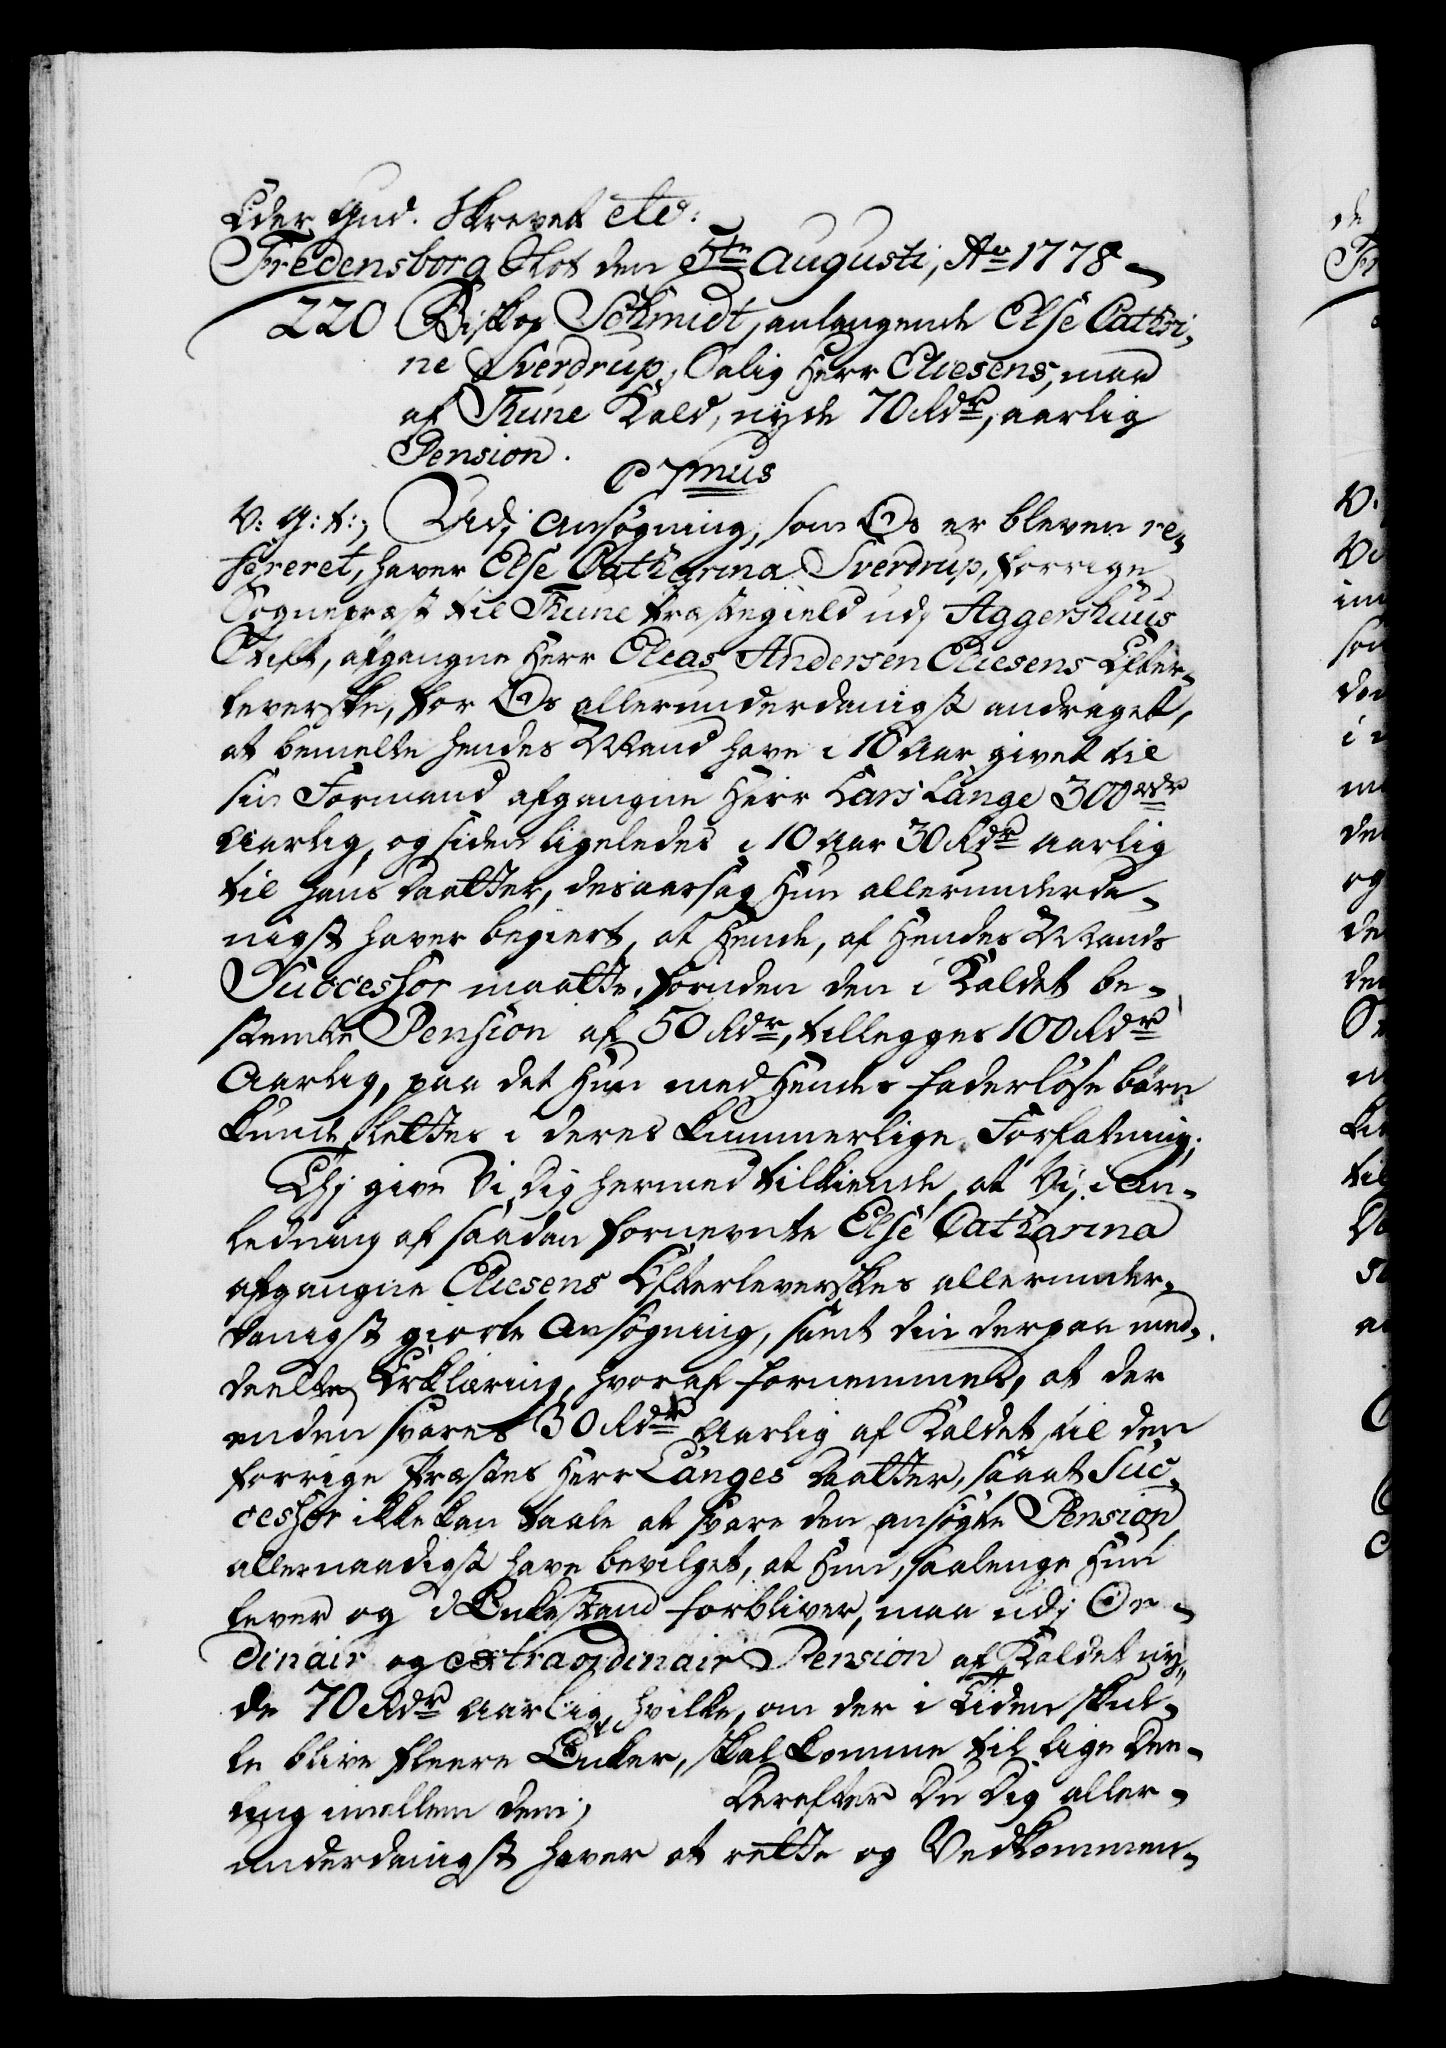 Eder Gud. Skrevet etc:
Fredensborg Slot den 5te Augusti, Ao 1778
220 Biskop Schmidt, anlangende Else Cathri,
ne Sverdrup, Salig Herr Eliesens, maa
af Thune Kald, nyde 70 Rdr, aarlig
Pension.
C 7mus
V: G: T:, Udj Ansøgning, som Os er bleven re,
fereret, haver Else Catharina Sverdrup, forrige
Sognepræst til Thune Præstegield udj Aggershuus
Stift, afgangne Herr Elias Andersen Eliesens Efter,
leverske, for Os allerunderdanigst andraget,
at bemelte hendes Mand have i 10 Aar givet til
sin Formand afgangne Herr Lars Lange 300 rdr
Aarlig, og siden ligeledes i 10 Aar 30 Rdr Aarlig
til hans Daatter, desaarsag Hun allerunderda,
nigst haver begiert, at Hende, af Hendes Mands
Successor maatte, foruden den i Kaldet be,
stemte Pension af 50 Rdr, tillegges 100 Rdr
Aarlig, paa det Hun med Hendes faderløse børn
kunde lettes i deres kummerlige Forfatning;
Thj give Vi Dig hermed tilkiende, at Vi, i An,
ledning af saadan fornevnte Else Catharina
afgangne Eliesens Efterleverskes allerunder,
danigst giorte Ansøgning, samt din derpaa med,
deelte Erklæring, hvoraf fornemmes, at der
enden svares 30 Rdr Aarlig af Kaldet til den
forrige Præstes Herr Langes Daatter, saa at Suc,
cessor ikke kan taale at svare den ansøgte Pension
allernaadigst have bevilget, at Hun, saalenge Hun
lever og i Enkestand forbliver, maa udj Or,
dinair og extraordinair Pension af Kaldet ny,,
de 70 Rdr Aarlig, hvilke, om der i Tiden skul,
le blive fleere Enker, skal komme til lige Dee,
ling imellem dem; Derefter Du Dig aller,
underdanigst haver at rette og Vedkommen,